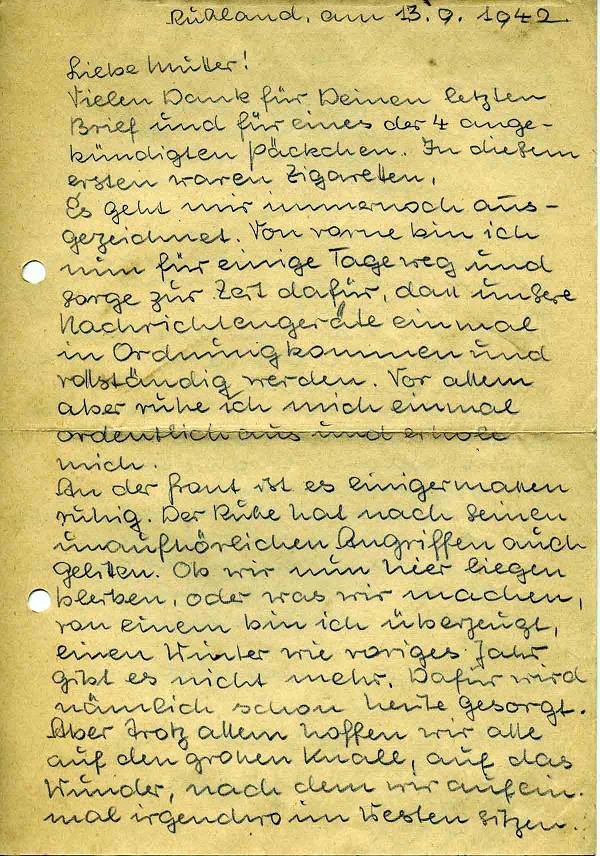 Rußland, am 13.9.1942.
Liebe Mutter!
Vielen Dank für Deinen letzten
Brief und für eines der 4 ange-
kündigten Päckchen. In diesem
ersten waren Zigaretten.
Es geht mir immernoch aus-
gezeichnet. Von vorne bin ich
nun für einige Tage weg und
sorge zur Zeit dafür, daß unsere
Nachrichtengeräte einmal
in Ordnung kommen und
vollständig werden. Vor allem
aber ruhe ich mich einmal
ordentlich aus und erhole
mich.
An der Front ist es einigermaßen
ruhig. Der Ruße hat nach seinen
unaufhörlichen Angriffen auch
gelitten. Ob wir nun hier liegen
bleiben, oder was wir machen,
von einem bin ich überzeugt,
einen Winter wie voriges Jahr
gibt es nicht mehr. Dafür wird
nämlich schon heute gesorgt.
Aber trotz allem hoffen wir alle
auf den großen Knall, auf das
Wunder, nach dem wir auf ein-
mal irgendwo im Westen sitzen.